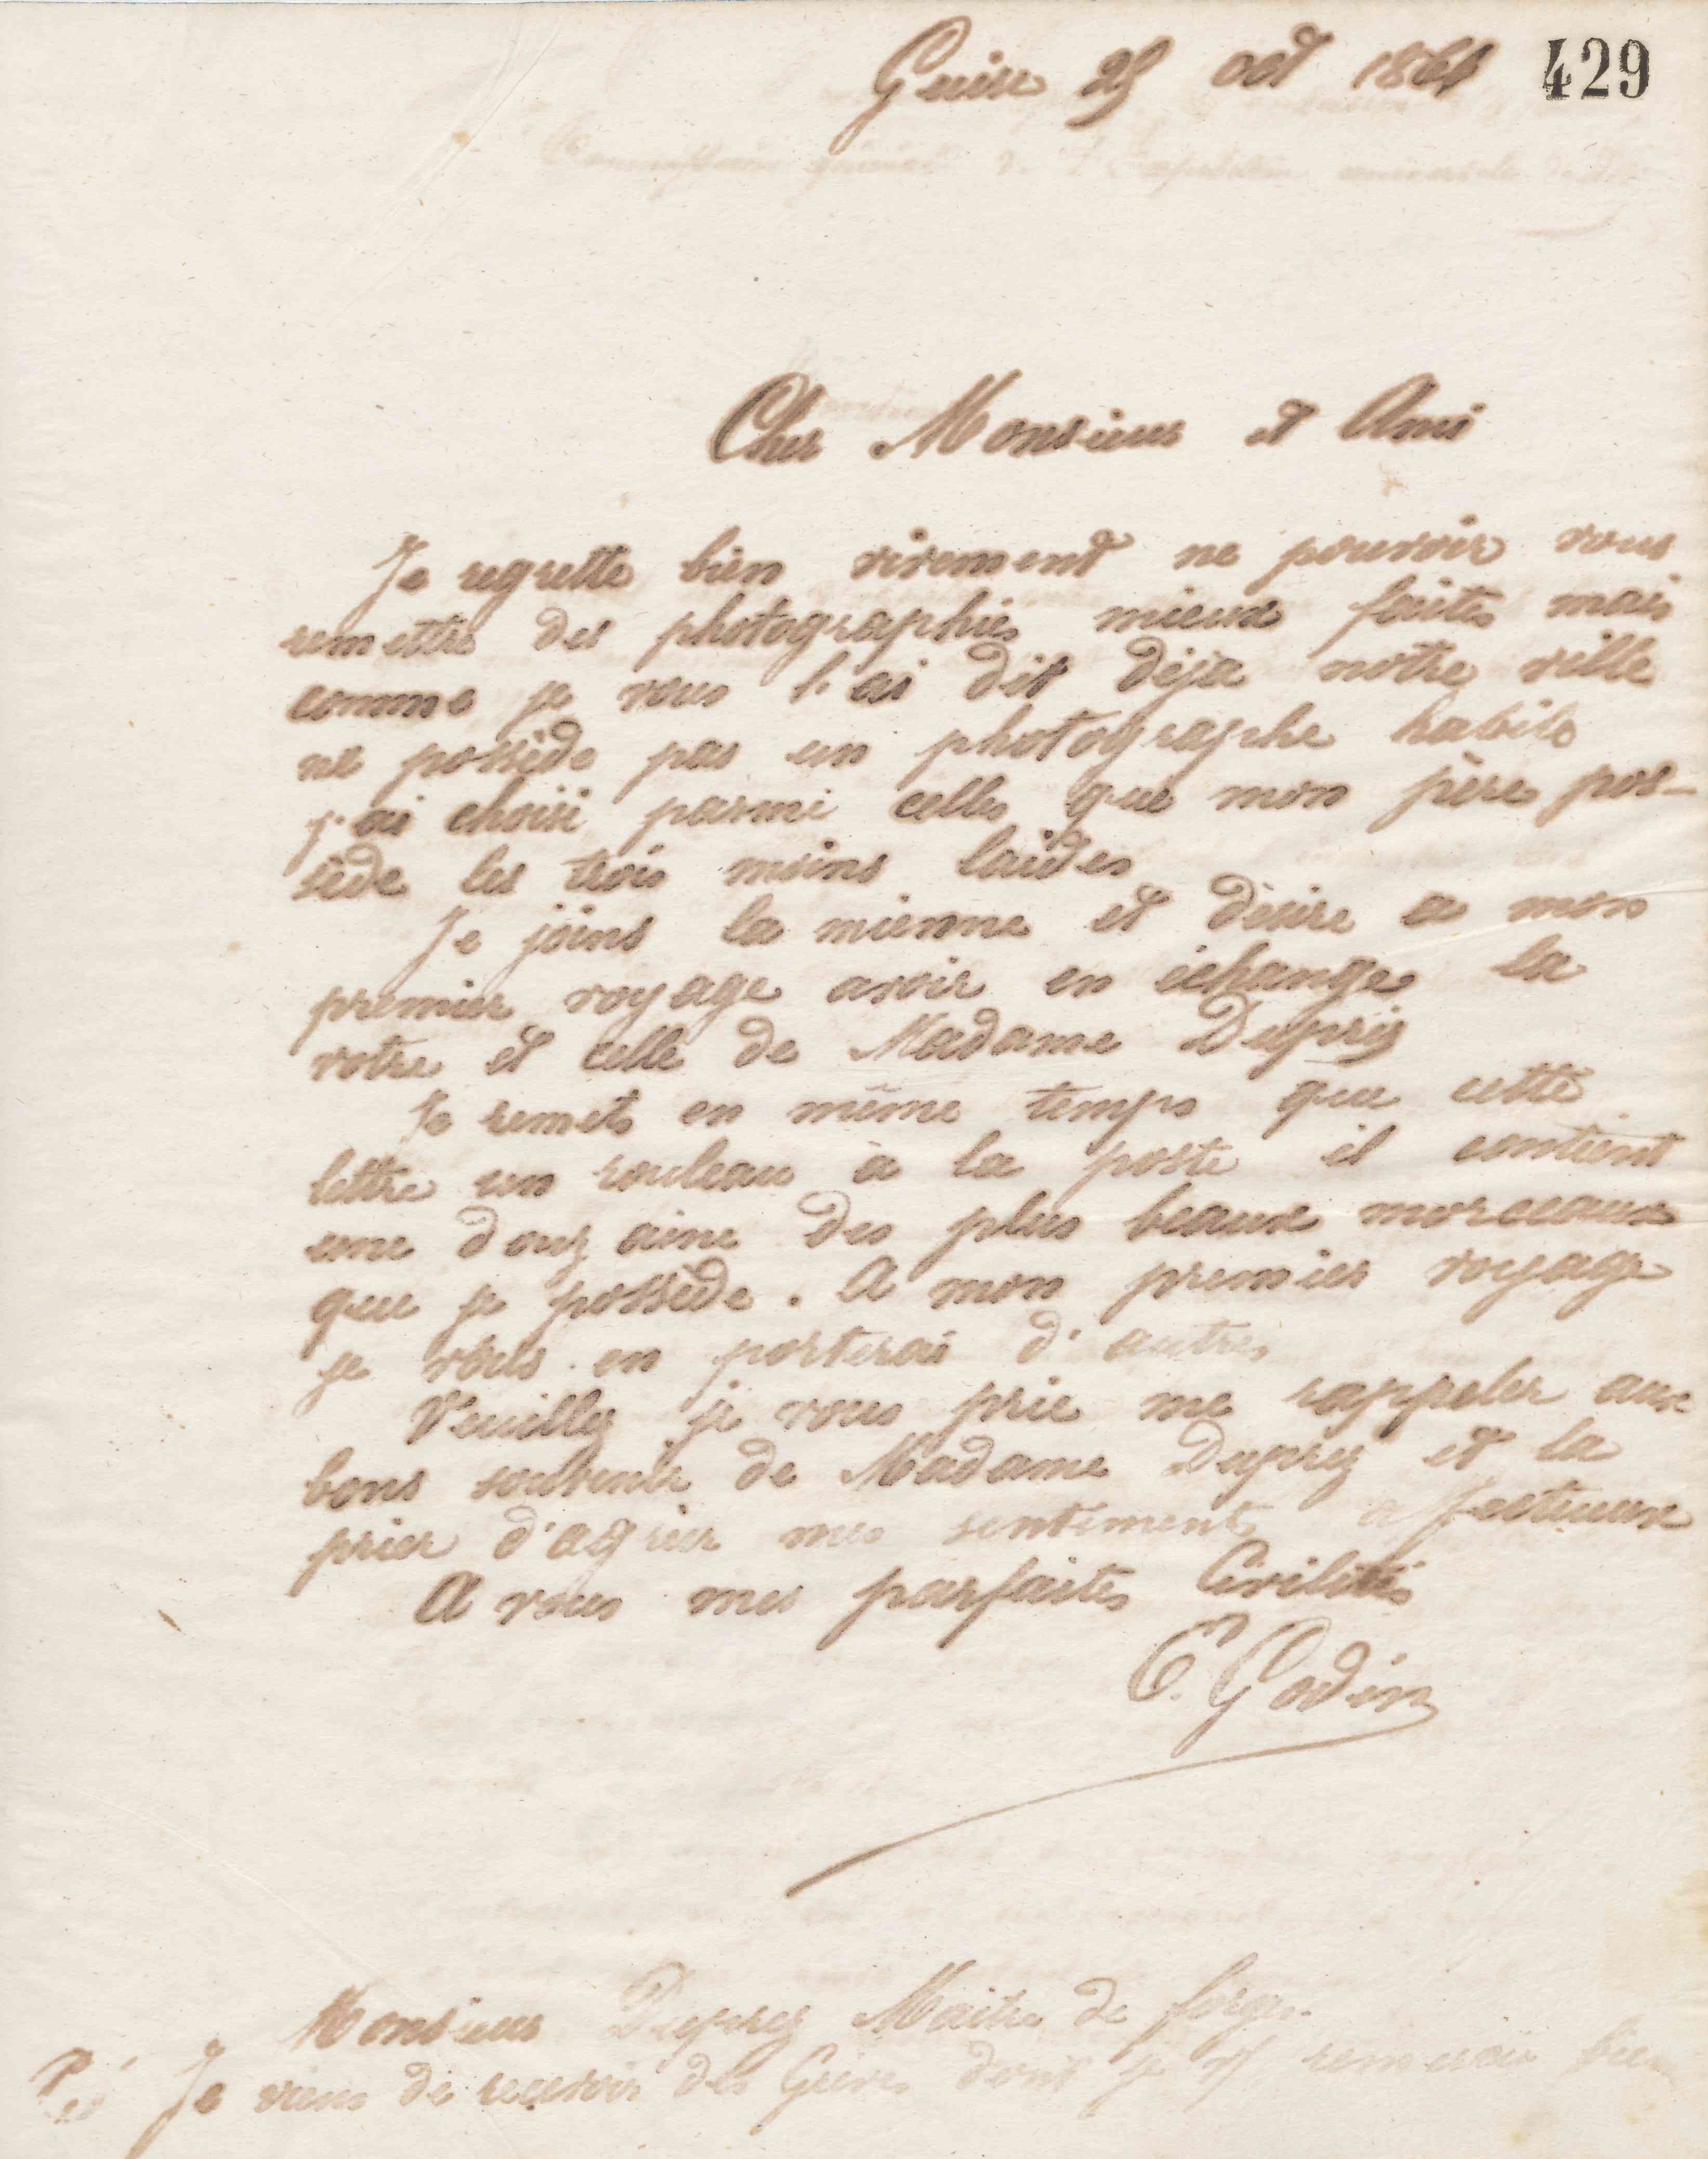 Guise 25 oct 1864 429
Cher Monsieur et Ami
Je regrette bien vivement ne pouvoir vous
remettre des photographies mieux faites mais
comme je vous l'ai dit déja notre ville
ne possède pas un photographe habile
j'ai choisi parmi celles que mon père pos-
sède les trois moins laides
Je joins la mienne et désire a mon
premier voyage avoir en échange la
votre et celle de Madame Duprez
Je remets en même temps que cette
lettre un rouleau à la poste il contient
une douzaine des plus beaux morceaux
que je possède. A mon premier voyage
je vous en porterai d'autres
Veuillez je vous prie me rappeler aux
bons souvenir de Madame Duprez et la
prier d'agréer mes sentiments affectueux
A vous mes parfaites Civilités
E. Godin
Monsieur Duprez Maitre de forges
Je viens de recevoir des Grives dont je remercie